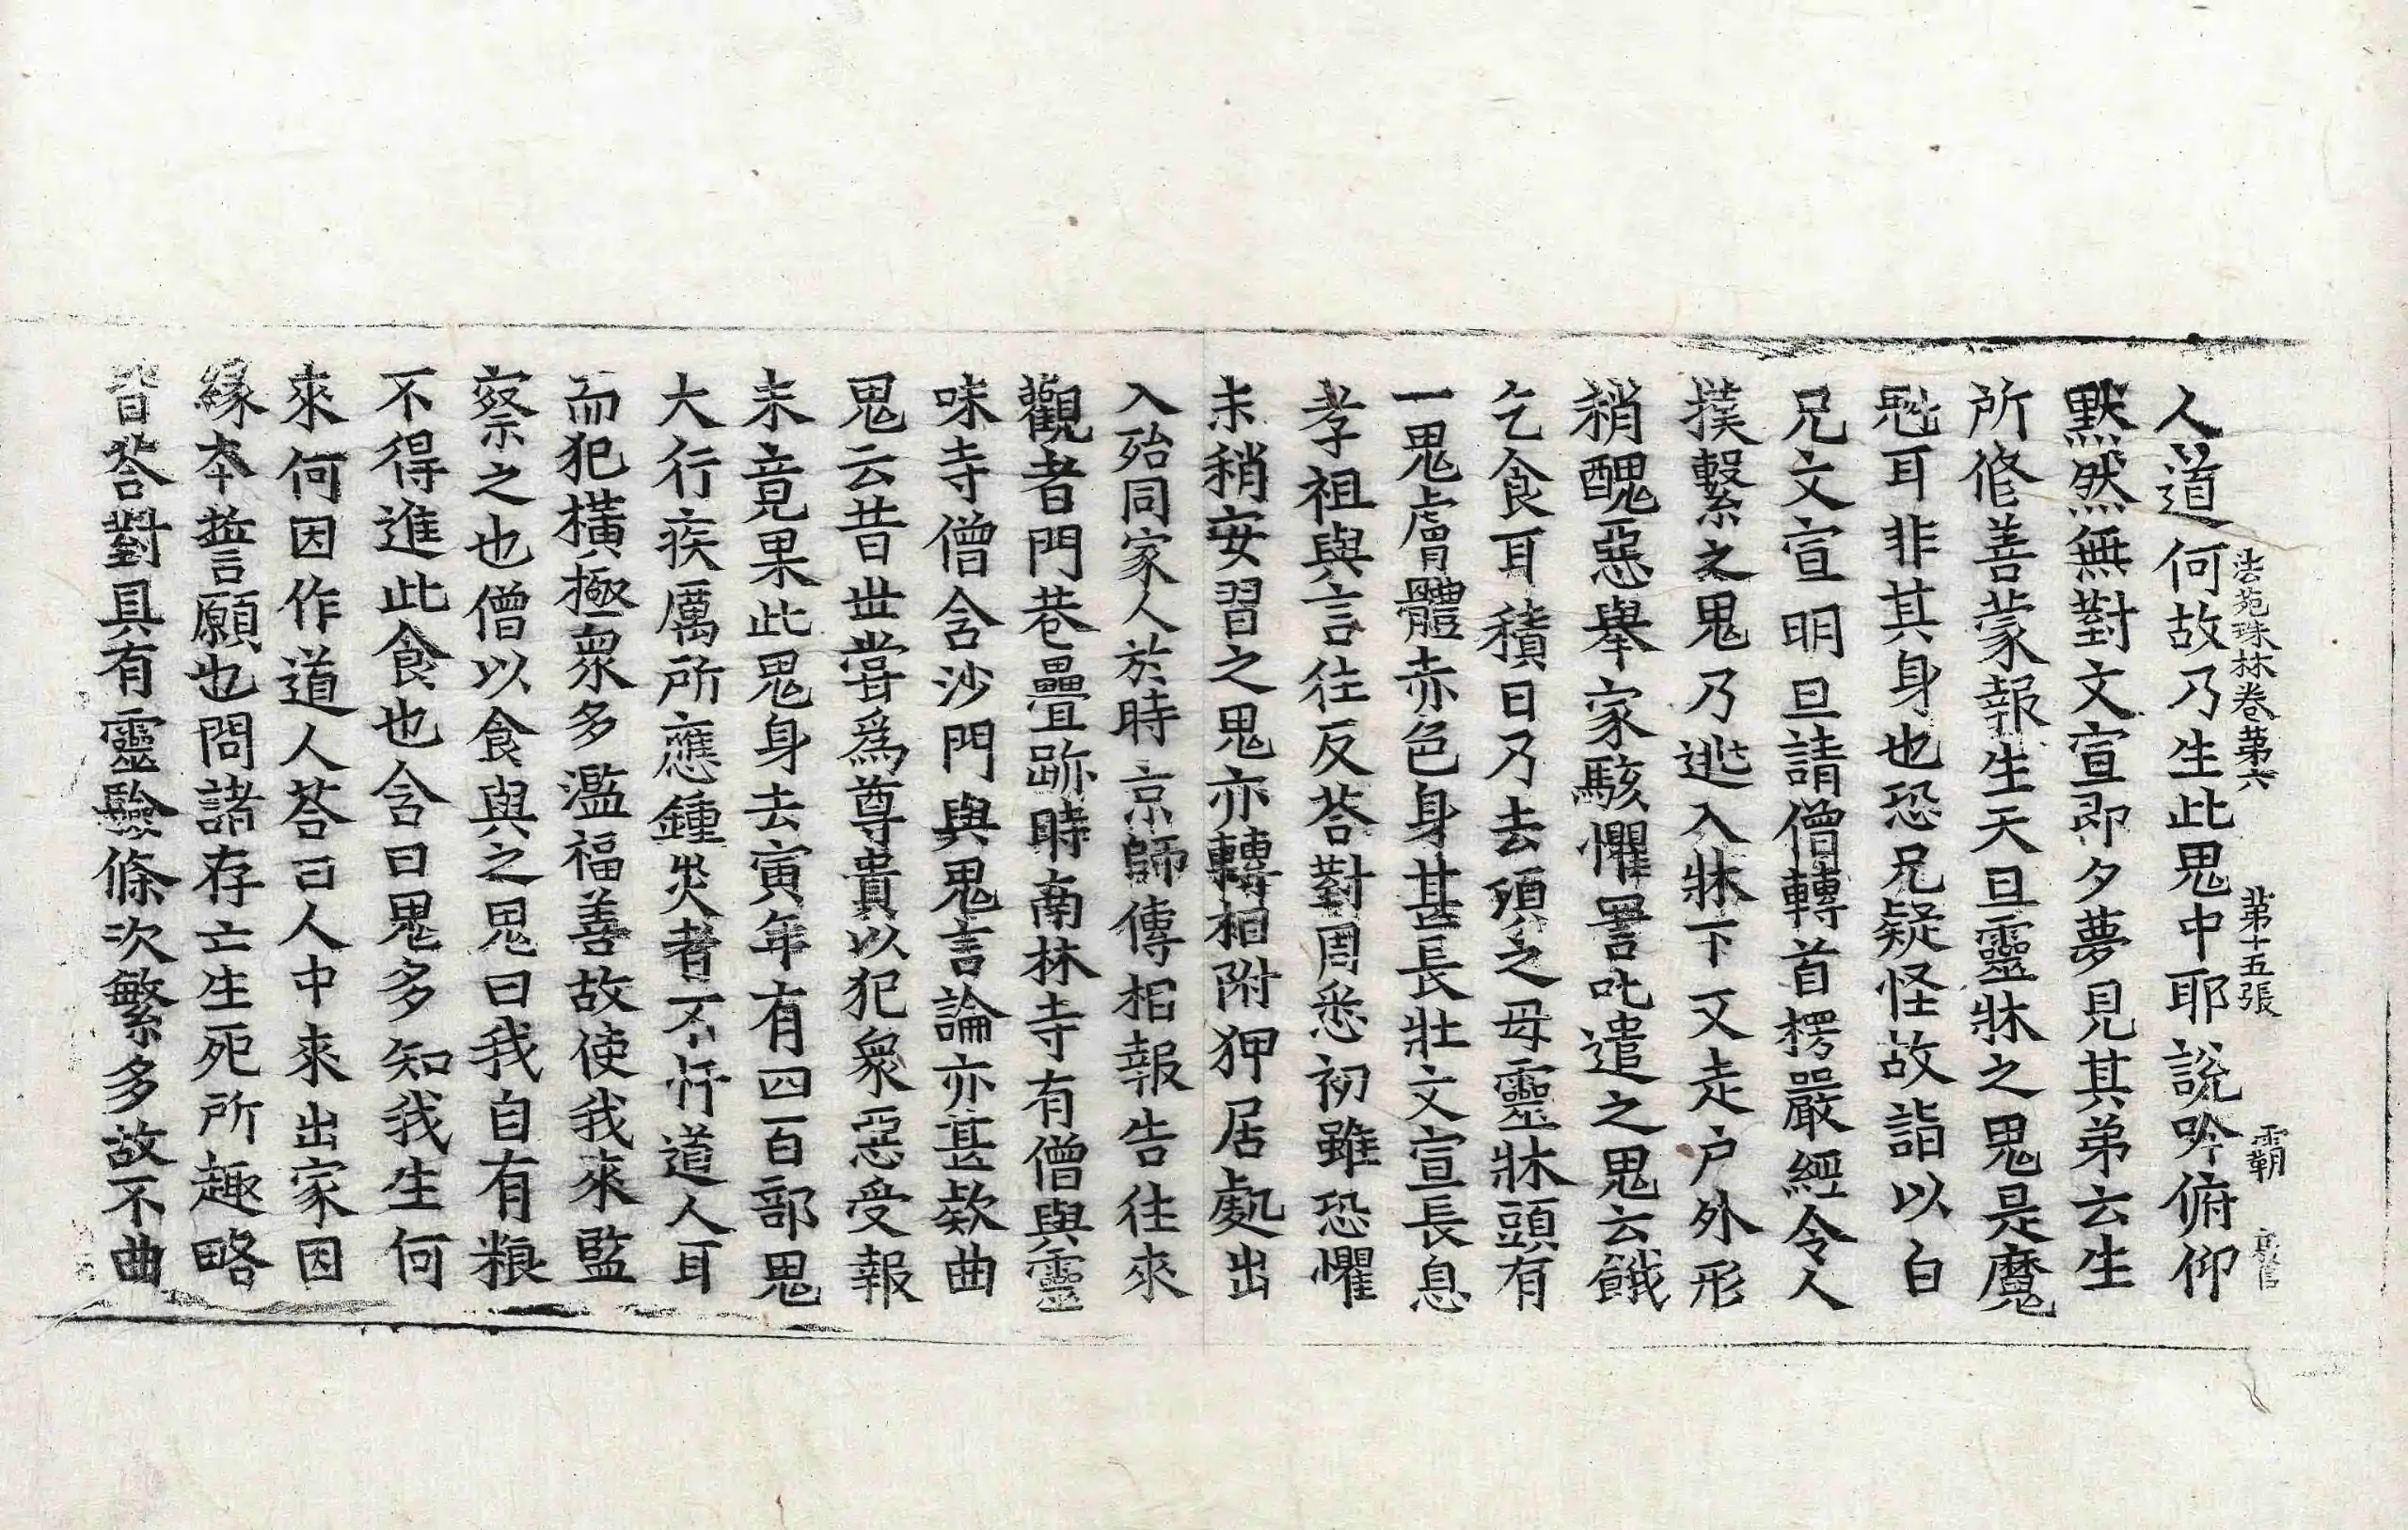 法苑珠林卷第六 第十五張 霸
人道何故乃生此鬼中耶說吟俯仰
默然無對文宣即夕夢見其弟云生
所修善蒙報生天旦靈牀之鬼是魔
鬼耳非其身也恐兄疑怪故詣以白
兄文宣明旦請僧轉首楞嚴經令人
撲繫之鬼乃逃入牀下又走户外形
稍醜惡舉家駭懼詈叱遣之鬼云餓
乞食耳積日乃去湏之母靈牀頭有
一鬼膚體赤色身甚長壯文宣長息
孝祖與言往反荅對周悉初雖恐懼
末稍安習之鬼亦轉相附狎居處出
入殆同家人於時京師傳相報告往來
觀者門巷疊跡時南林寺有僧與靈
味寺僧含沙門與鬼言論亦甚欵曲
鬼云昔世嘗爲尊貴以犯衆惡受報
未竟果此鬼身去寅年有四百部鬼
大行疾厲所應鍾災者不忓道人耳
而犯橫極衆多濫福善故使我來監
察之也僧以食與之鬼曰我自有粮
不得進此食也含曰鬼多知我生何
來何因作道人荅曰人中來出家因
緣本誓願也問諸存亡生死所趣略
皆荅對具有靈驗條次繁多故不曲